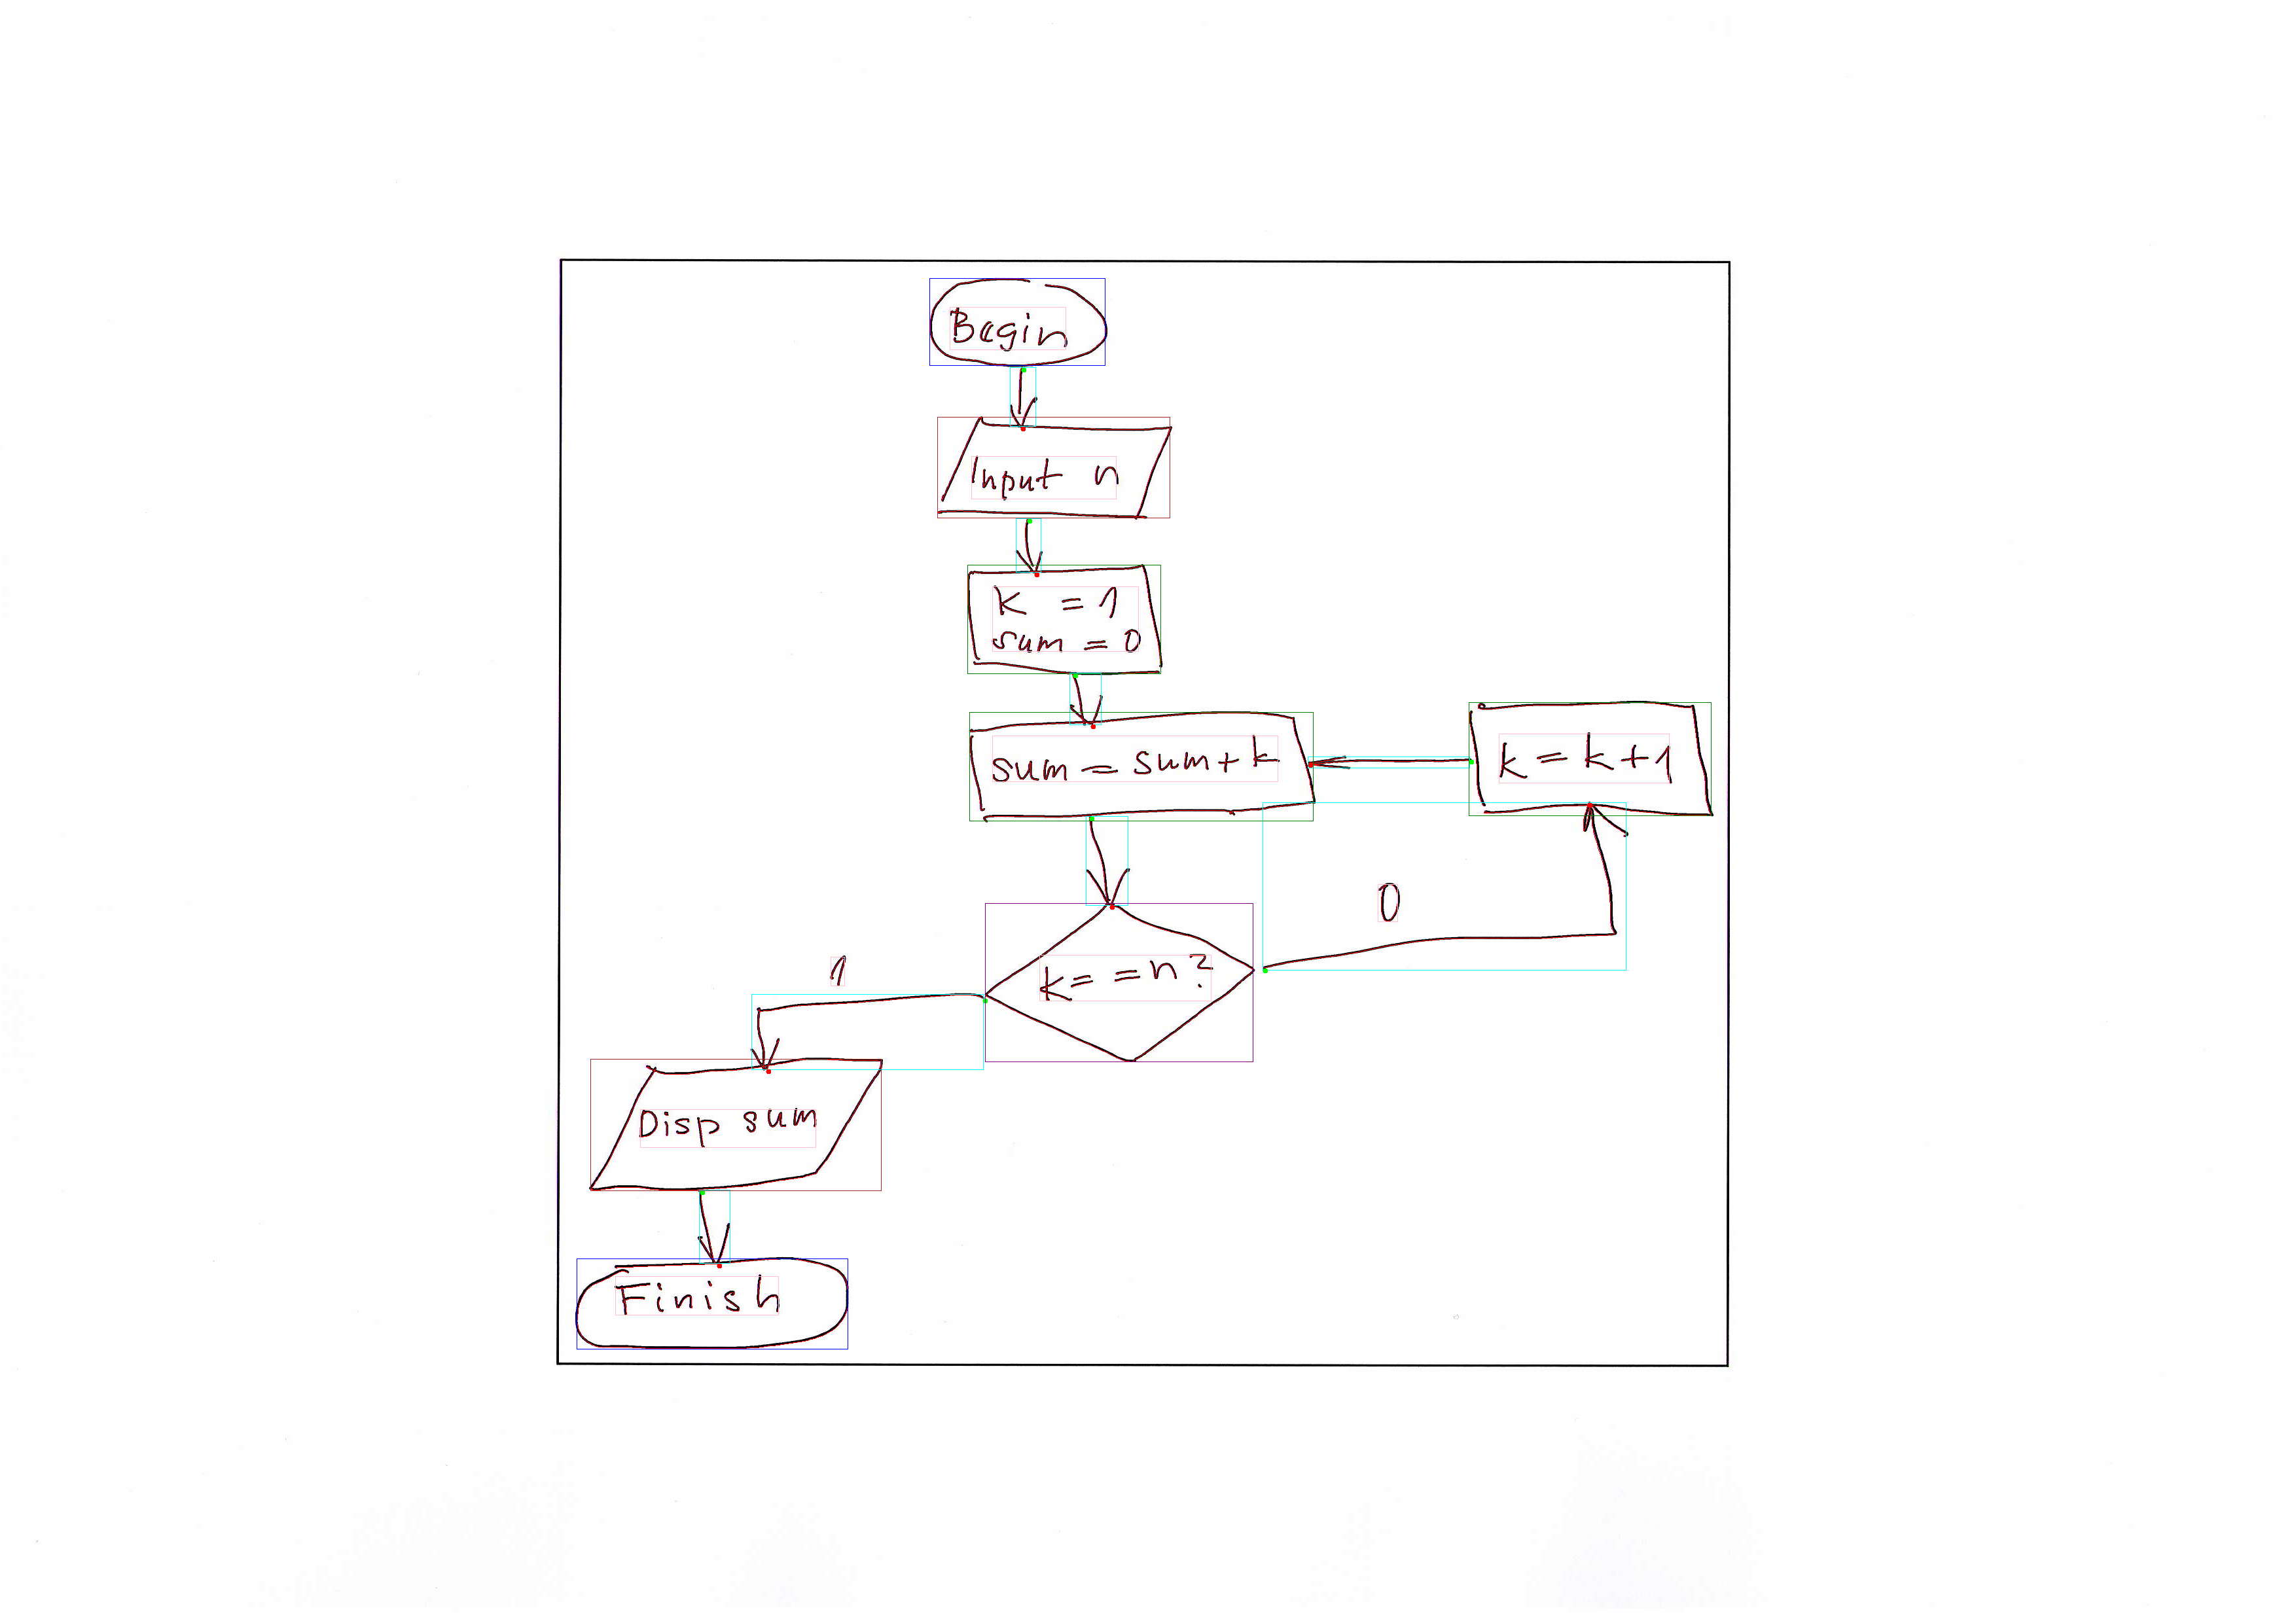 Begin
Input n
k = 1
sum = 0
sum = sum + k
k = k + 1
0
k = = n ?
1
Disp sum
Finish